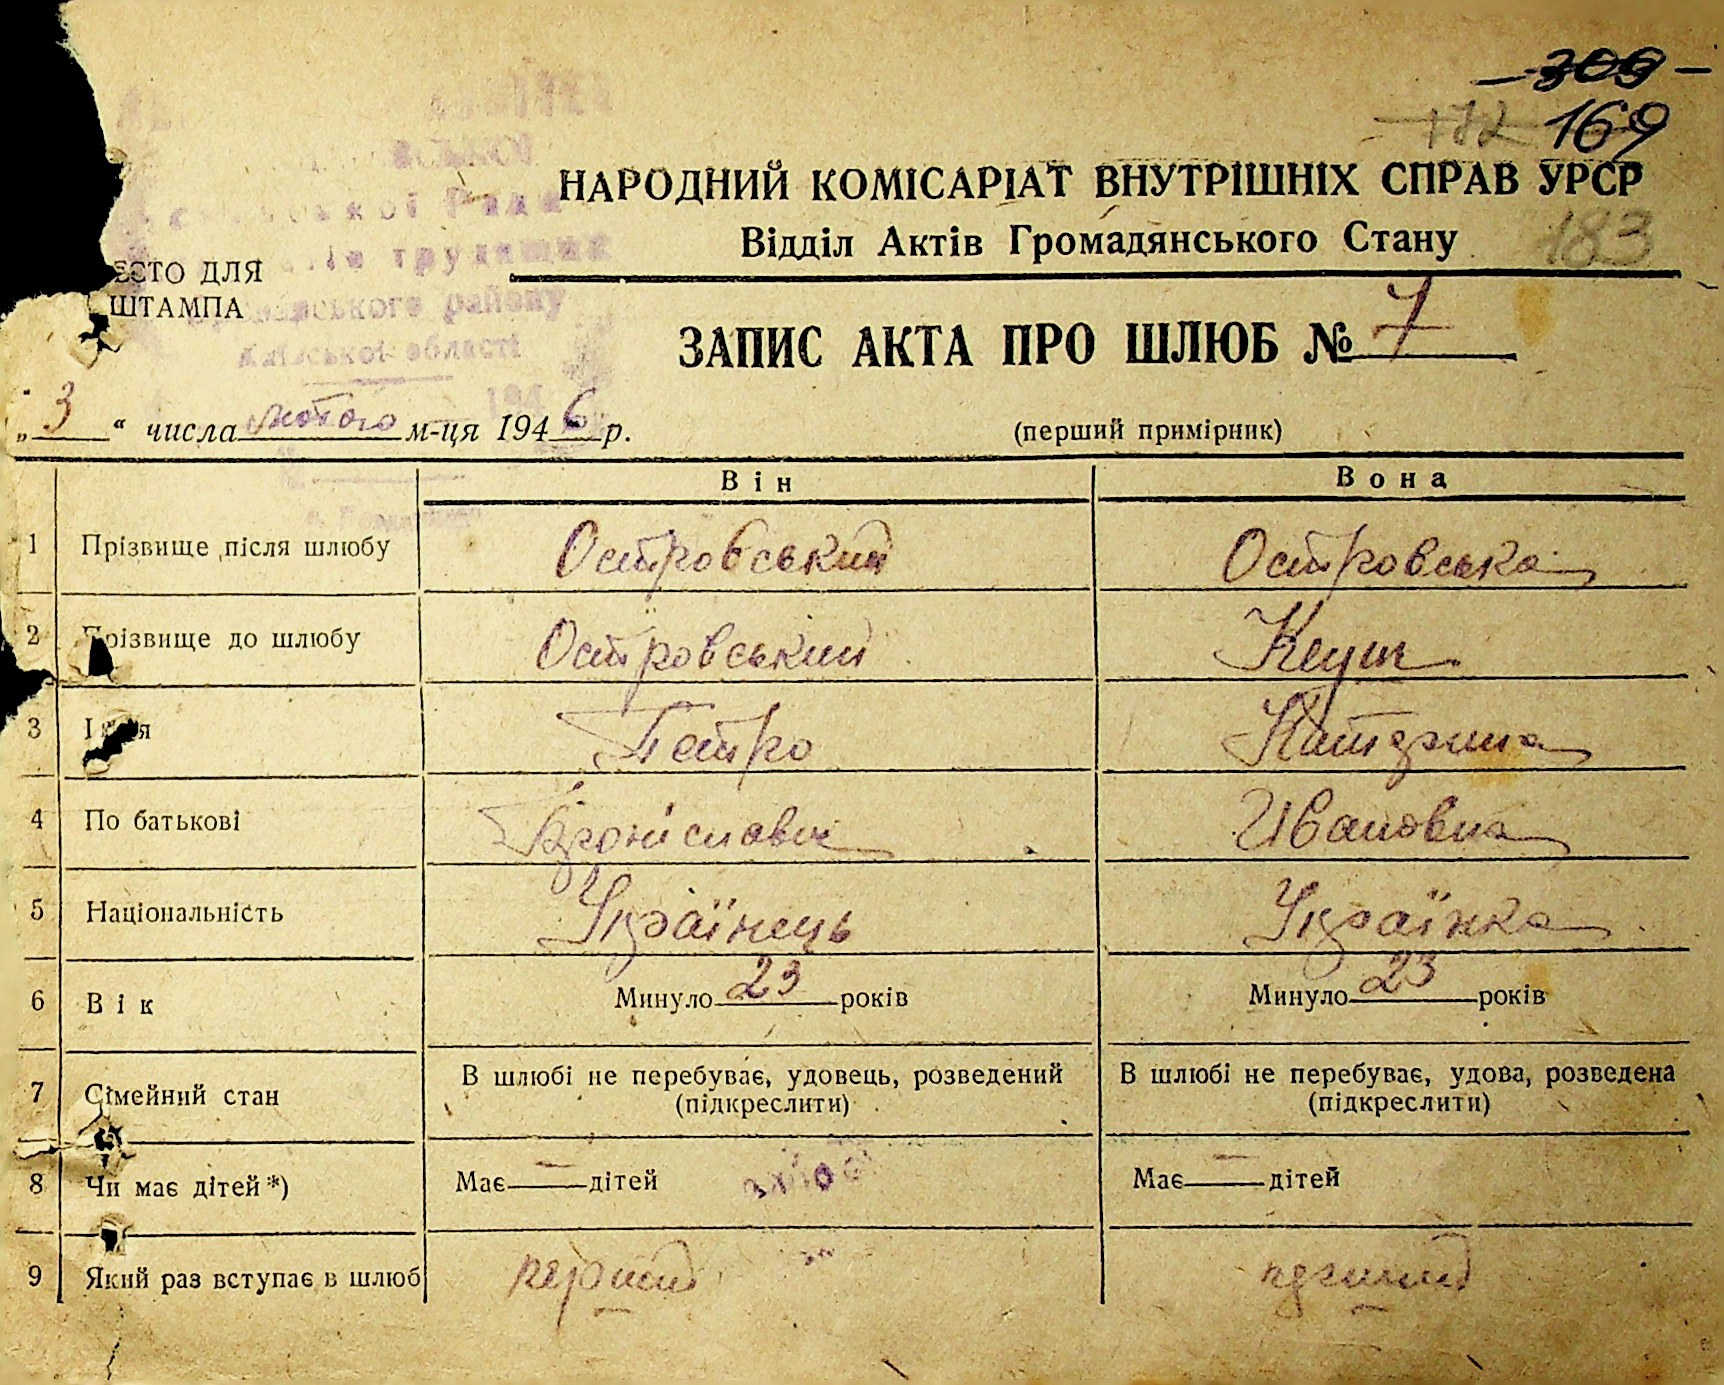 309
172 169
НАРОДНИЙ КОМІСАРІАТ ВНУТРІШНІХ СПРАВ УРСР
Відділ Актів Громадянського Стану 183
ЕСТО ДЛЯ
ШТАМПА
району
області
ЗАПИС АКТА ПРО ШЛЮБ № 7
„3“ числа лютого м-ця 1946 р.
(перший примірник)
Він Вона
1 Прізвище після шлюбу Островський Островська
2 Прізвище до шлюбу Островський Кеуш
3 Ім'я Петро Катерина
4 По батькові Броніславич Ивановна
5 Національність Українець Українка
6 Вік Минуло 23 років Минуло 23 років
7 Сімейний стан В шлюбі не перебуває, удовець, розведений В шлюбі не перебуває, удова, розведена
(підкреслити) (підкреслити)
8 Чи має дітей*) Має — дітей Має — дітей
9 Який раз вступає в шлюб перший перший